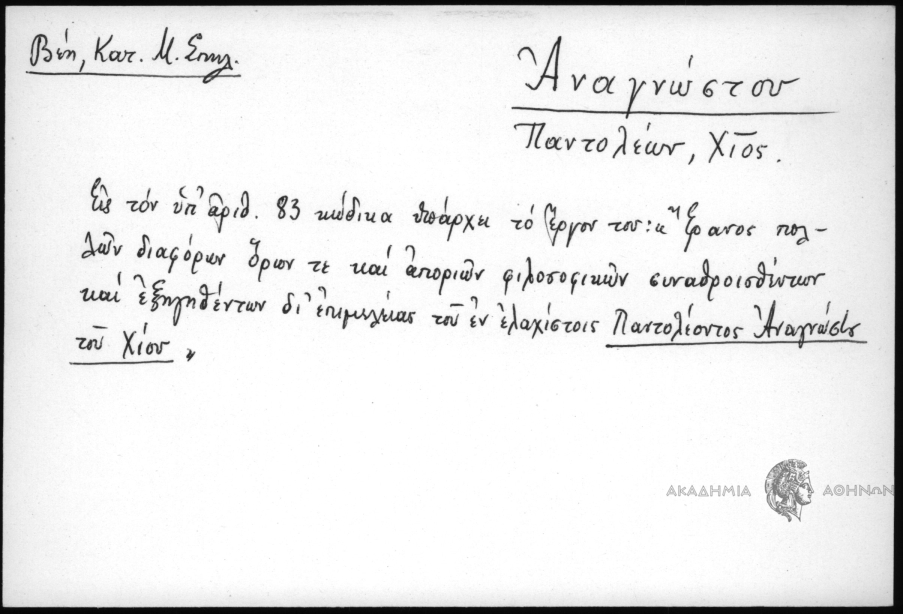 Βέη, Κατ. Μ. Σπηλ.
Ἀναγνώστου
Παντολέων, Χῖος.
Εἰς τόν ὑπ' ἀριθ. 83 κώδικα ὑπάρχει τό ἔργον του: « Ἔρανος πολ-
λῶν διαφόρων ὅρων τε καί ἀποριῶν φιλοσοφικῶν συναθροισθέντων
καί ἐξηγηθέντων δι' ἐπιμελείας τοῦ ἐν ἐλαχίστοις Παντολέοντος Ἀναγνώστου
τοῦ Χίου »
ΑΚΑΔΗΜΙΑ ΑΘΗΝΩΝ